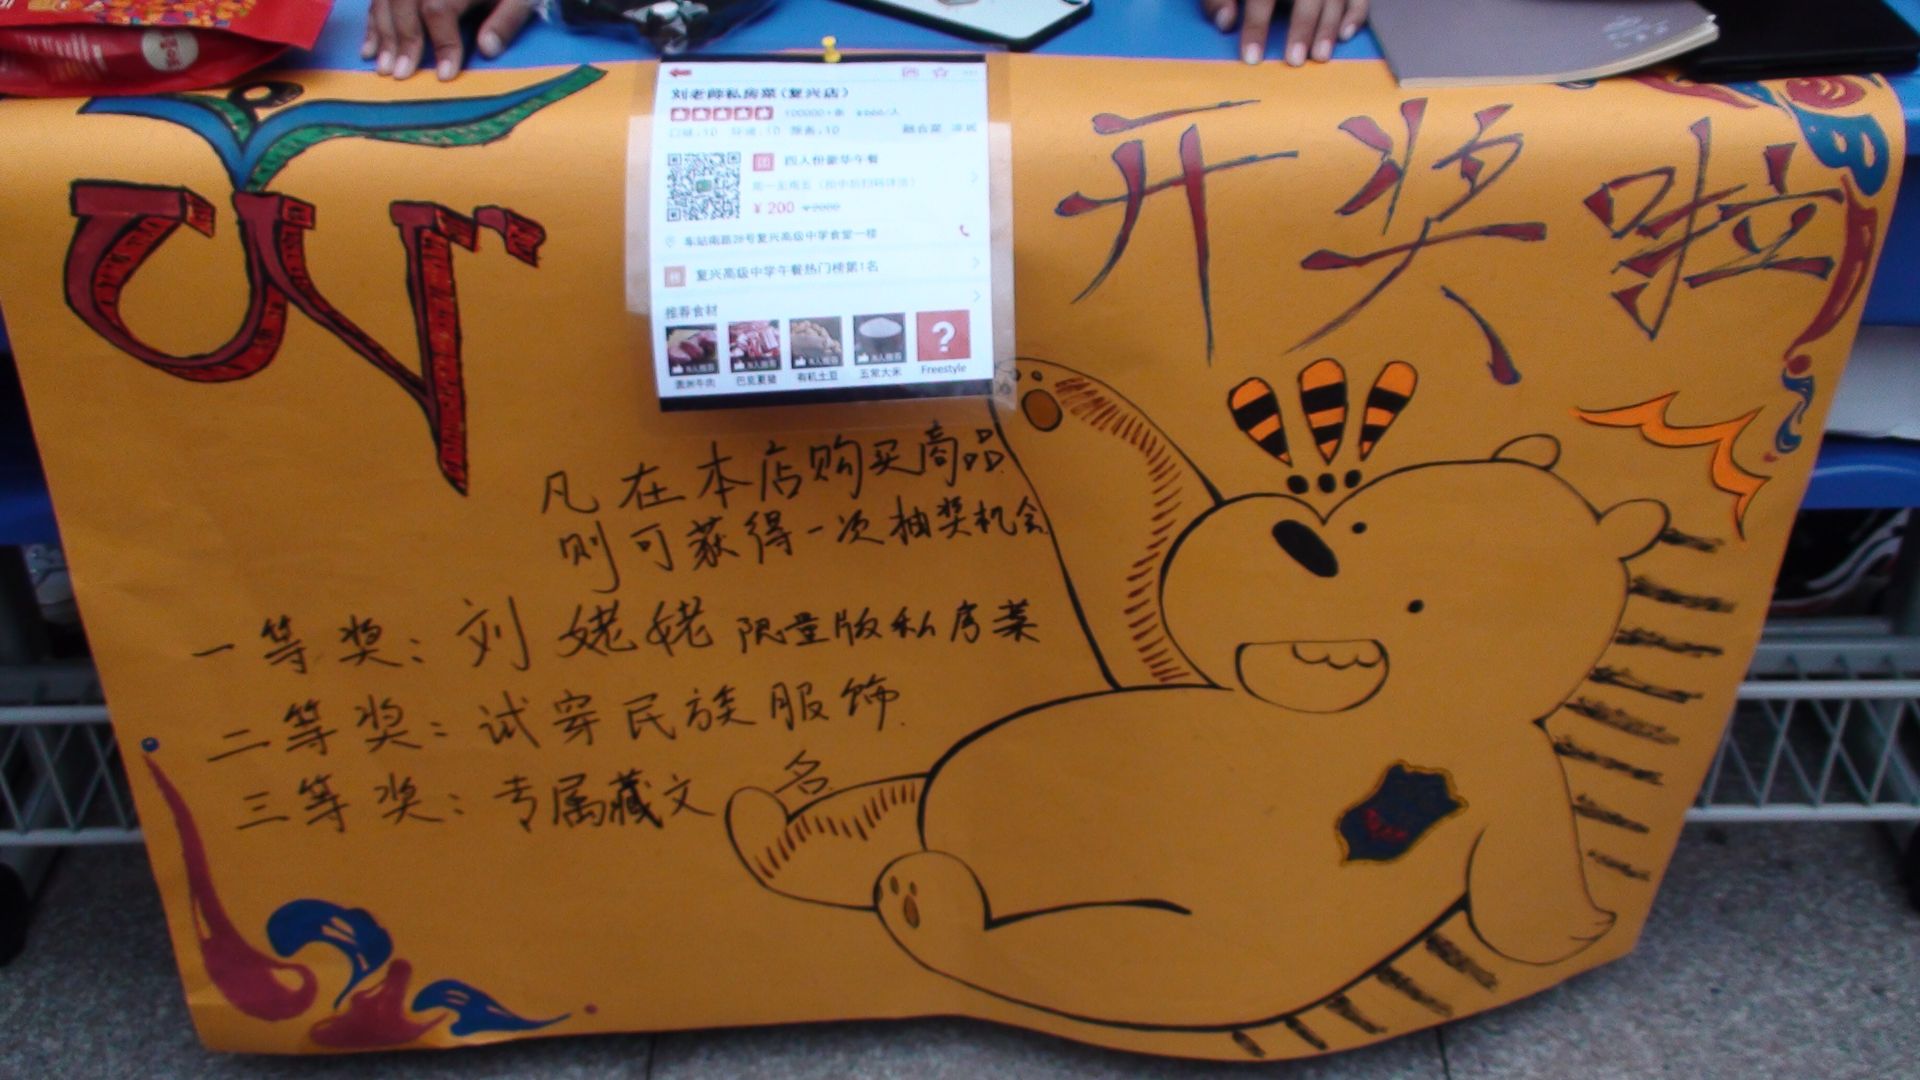 ཨོཾ
开奖啦
刘老师私房菜(复兴店)
100000+条
口味:10 环境:10 服务:10
融合菜
团 四人份豪华午餐
¥ 200
车站南路28号复兴高级中学食堂一楼
复兴高级中学午餐热门榜第1名
推荐食材
?
澳洲牛肉 巴克夏猪 有机土豆 五常大米 Freestyle
凡在本店购买商品
则可获得一次抽奖机会
一等奖:刘姥姥限量版私房菜
二等奖:试穿民族服饰.
三等奖:专属藏文名